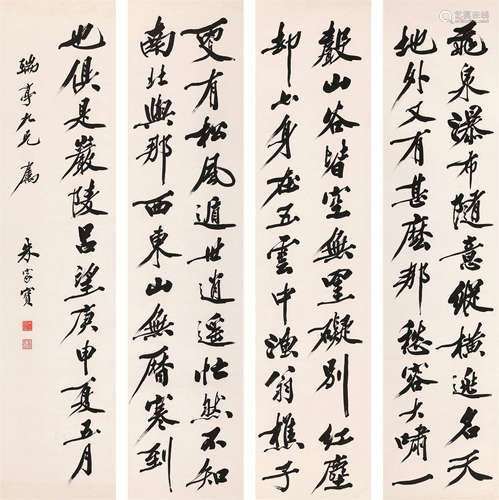 飛泉瀑布隨意縱橫逃名天
地外又有甚麼那愁客大嘯一
聲山谷皆空無罣礙別紅塵
却安身在五雲中漁翁樵子
更有松風遁世逍遥忙然不知
南北與那西東山無曆寒到
也俱是嚴陵呂望庚申夏五月
瑞亭九兄屬
朱家寶